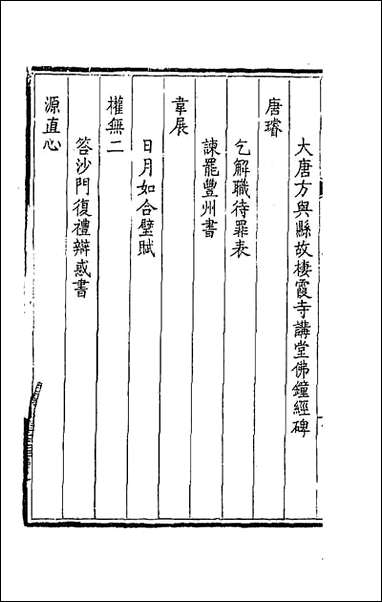 大唐方與縣故棲霞寺講堂佛鐘經碑
唐璿
乞解職待罪表
諫罷豐州書
韋展
日月如合璧賦
權無二
答沙門復禮辯惑書
源直心